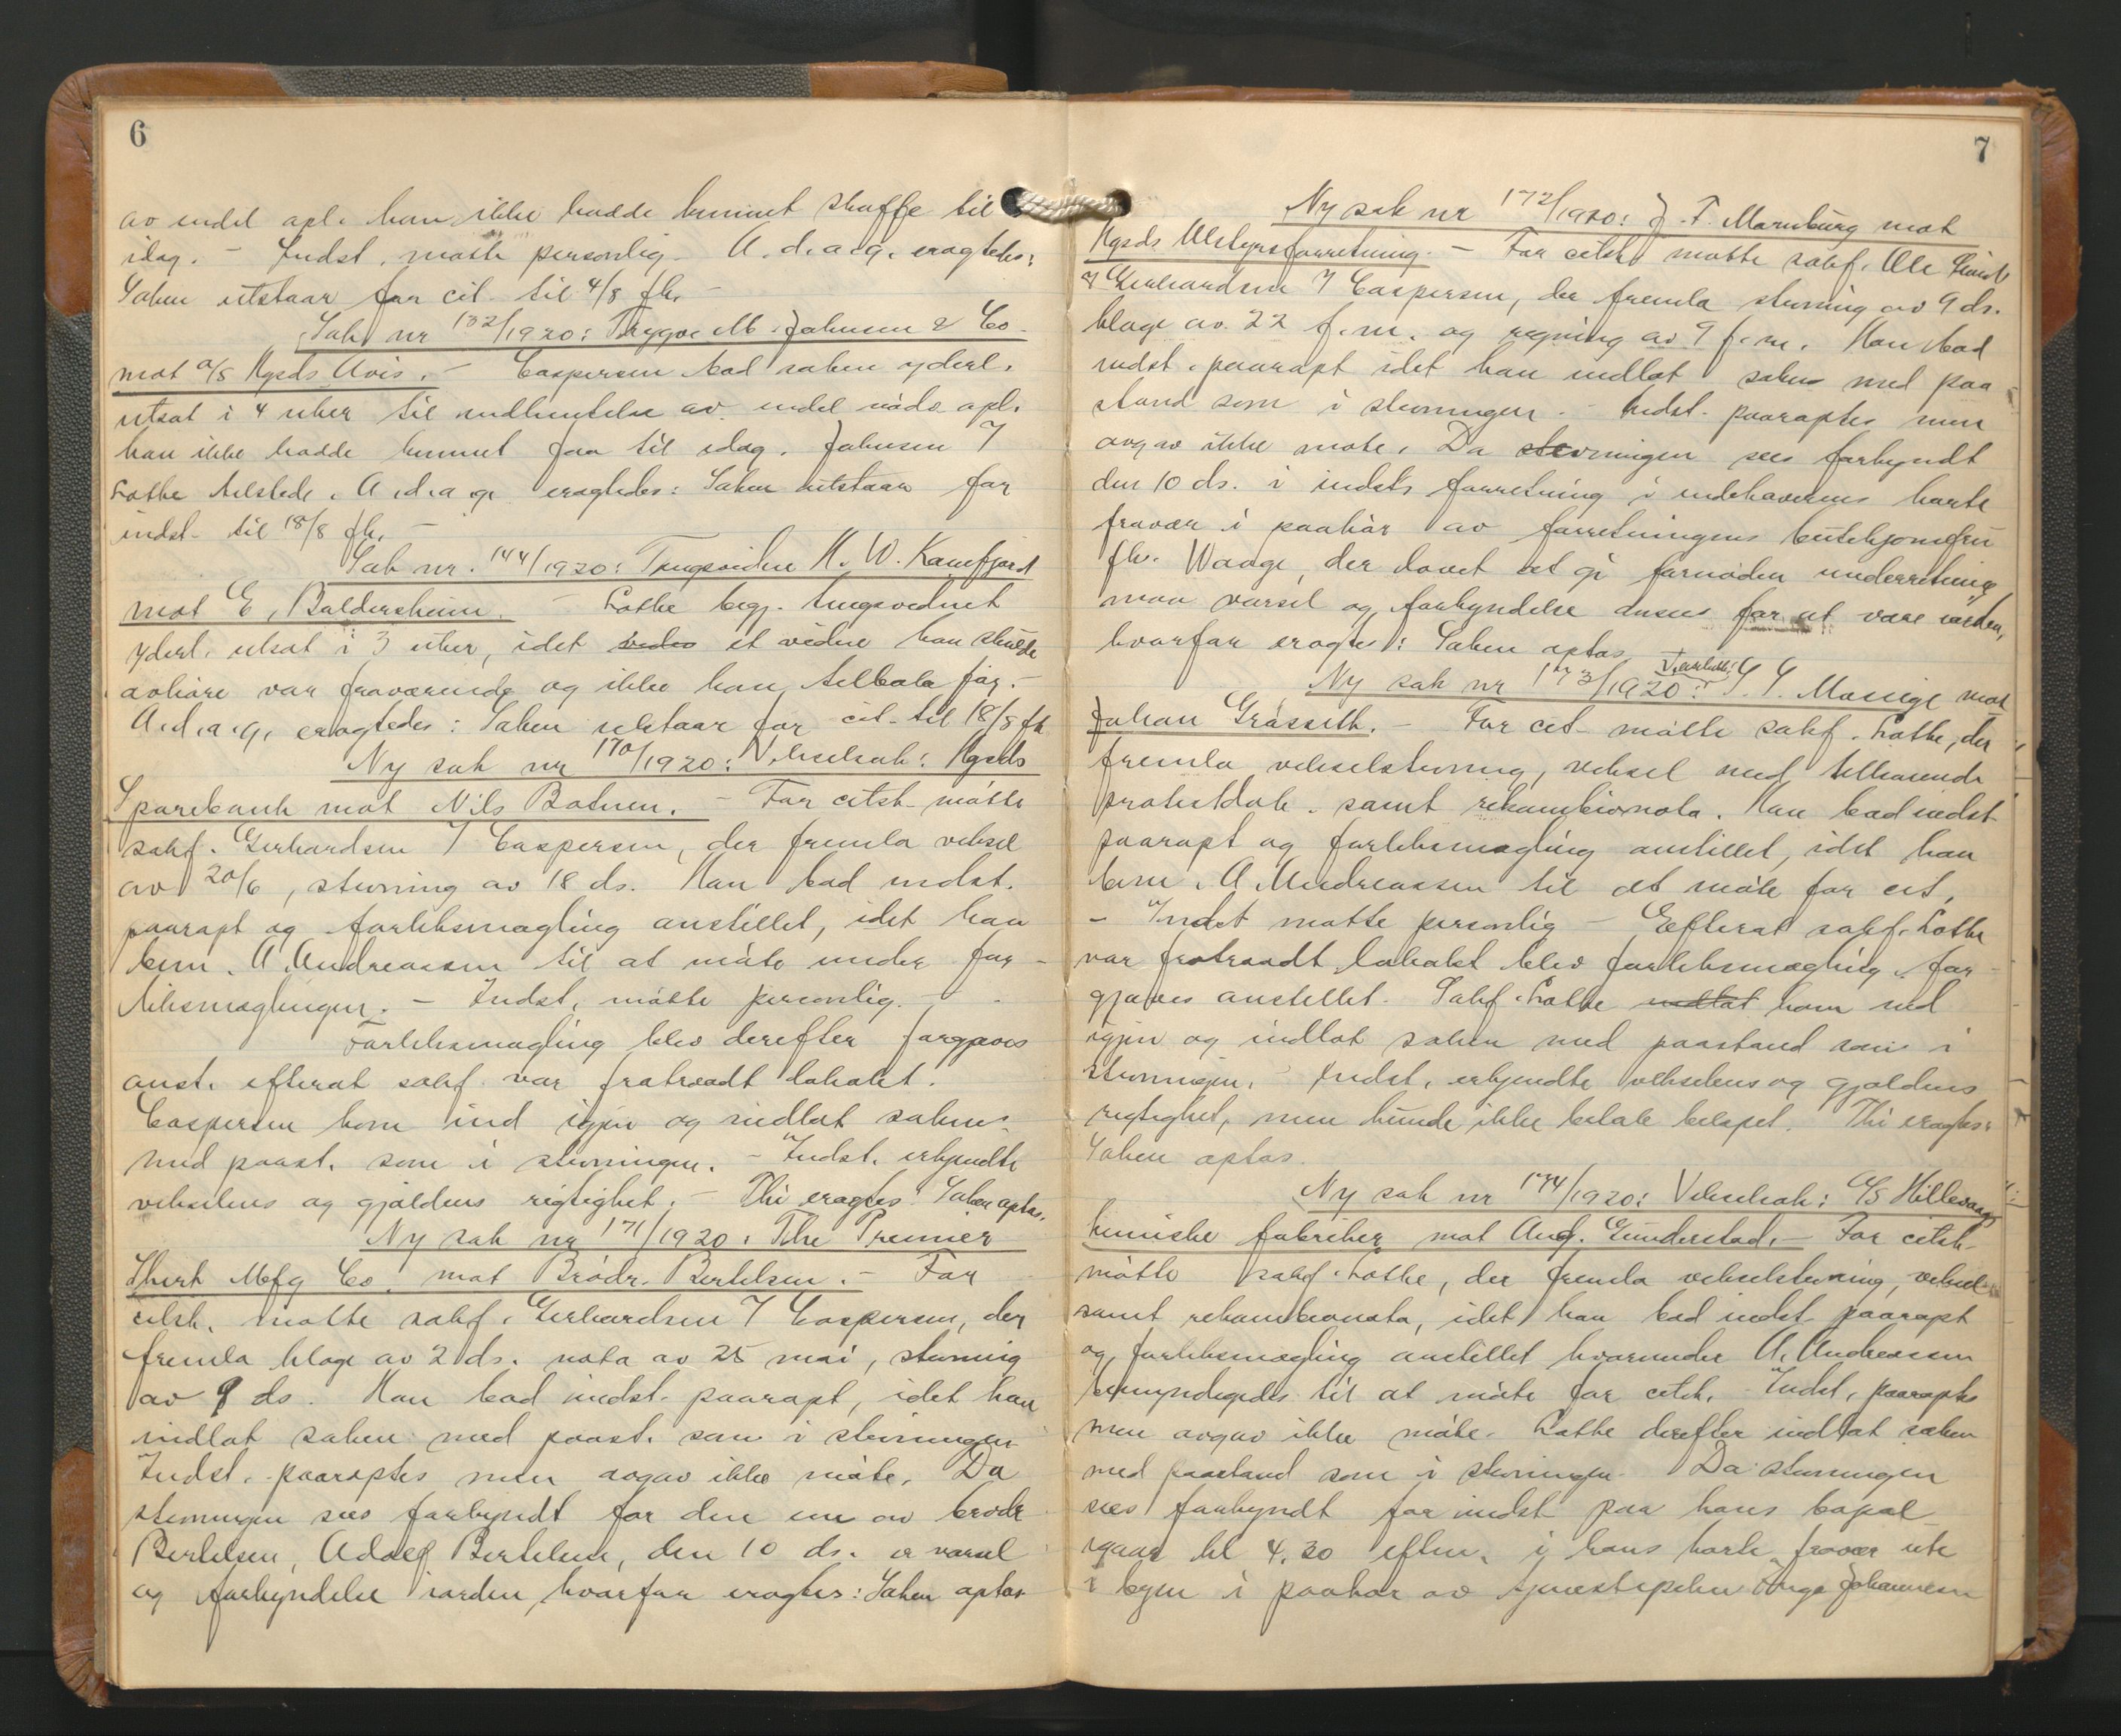 6
av endel opl. han ikke hadde kunnet skaffe til
idag. - Indst. møtte personlig. A. d. a. g. eragtedes:
Saken utstaar for cit. til 4/8 fk. -
Sak nr 132/1920: Trygve M. Johnsen & Co.
mot a/s Hgsds Avis. - Caspersen bad saken yderl.
utsat i 4 uker til indhentelse av endel nødv. opl.
han ikke hadde kunnet faa til idag. Johnsen f
Lothe tilstede. A. d. a. g. eragtedes: Saken utstaar for
indst. til 18/8 fk. -
Sak nr. 144/1920: Tingsvidne H. W. Kamfjord
mot E. Baldersheim. - Lothe begj. tingsvidnet
yderl. utsat i 3 uker, idet et vidne han skulde
avhøre var fraværende og ikke kan tilbake før. -
A. d. a. g. eragtedes: Saken utstaar for cit. til 18/8 fk
Ny sak nr 170/1920: Vekselsak: Hgsds
Sparebank mot Nils Botnen. - For citst. møtte
sakf. Gerhardsen f Caspersen, der fremla veksel
av 20/6, stevning av 18 ds. Han bad indst.
paaropt og forliksmægling anstillet, idet han
bem. A. Andreassen til at møte under for-
liksmæglingen. - Indst. møtte personlig. -
Forliksmægling blev derefter forgjæves
anst. efterat sakf. var fratraadt lokalet.
Caspersen kom ind igjen og indlot saken
med paast. som i stevningen. - Indst. erkjendte
vekselens og gjældens rigtighet. - Thi eragtes: Saken optas.
Ny sak nr 171/1920: The Premier
Shirt Mfg Co. mot Brødr. Bertelsen. - For
citst. møtte sakf. Gerhardsen f Caspersen, der
fremla klage av 2 ds. nota av 25 mai, stevning
av 9 ds. Han bad indst. paaropt, idet han
indlot saken med paast. som i stevningen
Indst. paaroptes men avgav ikke møte. Da
stevningen sees forkyndt for den ene av brødr
Bertelsen, Adolf Bertelsen, den 10 ds. er varsel
og forkyndelse iorden, hvorfor eragtes: Saken optas
7
Ny sak nr 172/1920: J. F. Marnburg mot
Hgsds Utstyrsforretning. - For citst. møtte sakf. Ole
f Gerhardsen f Caspersen, der fremla stevning av 9 ds.
klage av 22 f.m. og regning av 9 f.m. Han bad
indst. paaropt idet han indlot saken med paa-
stand som i stevningen. - Indst. paaroptes men
avgav ikke møte. Da stevningen sees forkyndt
den 10 ds. i indsts forretning i indehaverens korte
fravær i paahør av forretningens butikjomfru
frk. Waage, der lovet at gi fornøden underretning
maa varsel og forkyndelse ansees for at være iorden,
hvorfor eragtes: Saken optas
Ny sak nr 173/1920: Vekselsak: G. G. Massige mot
Johan Grasseth. - For cit. møtte sakf. Lothe, der
fremla vekselstevning, veksel med tilhørende
protestdok. samt rekambionota. Han bad indst.
paaropt og forliksmægling anstillet, idet han
bem. A. Andreassen til at møte for cit.
- Indst møtte personlig - Efterat sakf. Lothe
var fratraadt lokalet blev forliksmægling for-
gjæves anstillet. Sakf. Lothe indlot kom ind
igjen og indlot saken med paastand som i
stevningen. - Indst. erkjendte vekselens og gjældens
rigtighet, men kunde ikke betale beløpet. Thi eragtes:
Saken optas.
Ny sak nr 174/1920: Vekselsak: A/S Hillevaag
kemiske fabriker mot Aug. Gunderstad. - For citst.
møtte sakf. Lothe, der fremla vekselstevning, veksel
samt rekambionota, idet han bad indst. paaropt
og forliksmægling anstillet hvorunder A. Andreassen
bemyndigedes til at møte for citst. Indst. paaroptes
men avgav ikke møte. Lothe derefter indlot saken
med paastand som i stevningen. Da stevningen
sees forkyndt for indst paa hans bopæl
igaar kl 4.30 efterm. i hans korte fravær ute
i byen i paahør av tjenestepiken Inga Johannesen